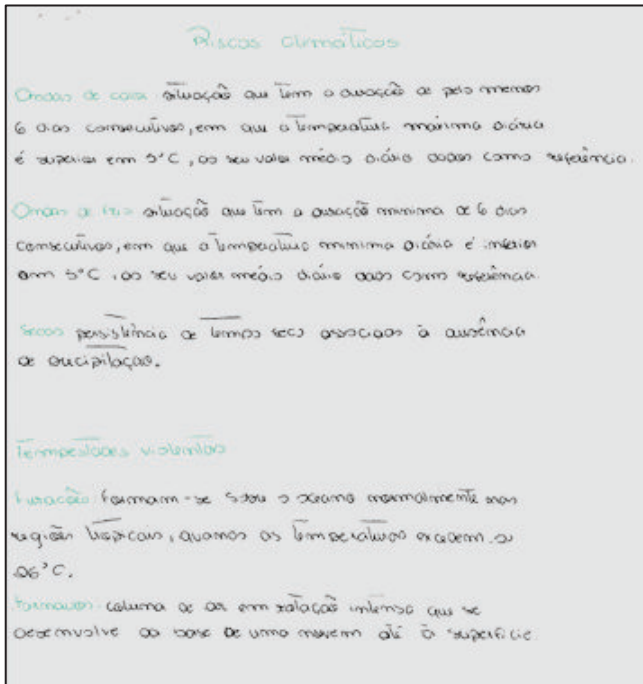 Riscos climáticos
Ondas de calor situação que tem a duração de pelo menos
6 dias consecutivos, em que a temperatura máxima diária
é superior em 5°C, ao seu valor médio diário dados como referência.
Ondas de frio situação que tem a duração minima de 6 dias
consecutivos, em que a temperatura minima diária é inferior
em 5°C, ao seu valor médio diário dado como referência.
Secas persistência de tempo seco associado à ausência
de precipitação.
Tempestades violentas
Furacões: Formam-se sobre o oceano normalmente nas
regiões tropicais, quando as temperaturas excedem os
26°C.
Tornados: coluna de ar em rotação intensa que se
desenvolve da base de uma nuvem até à superfície